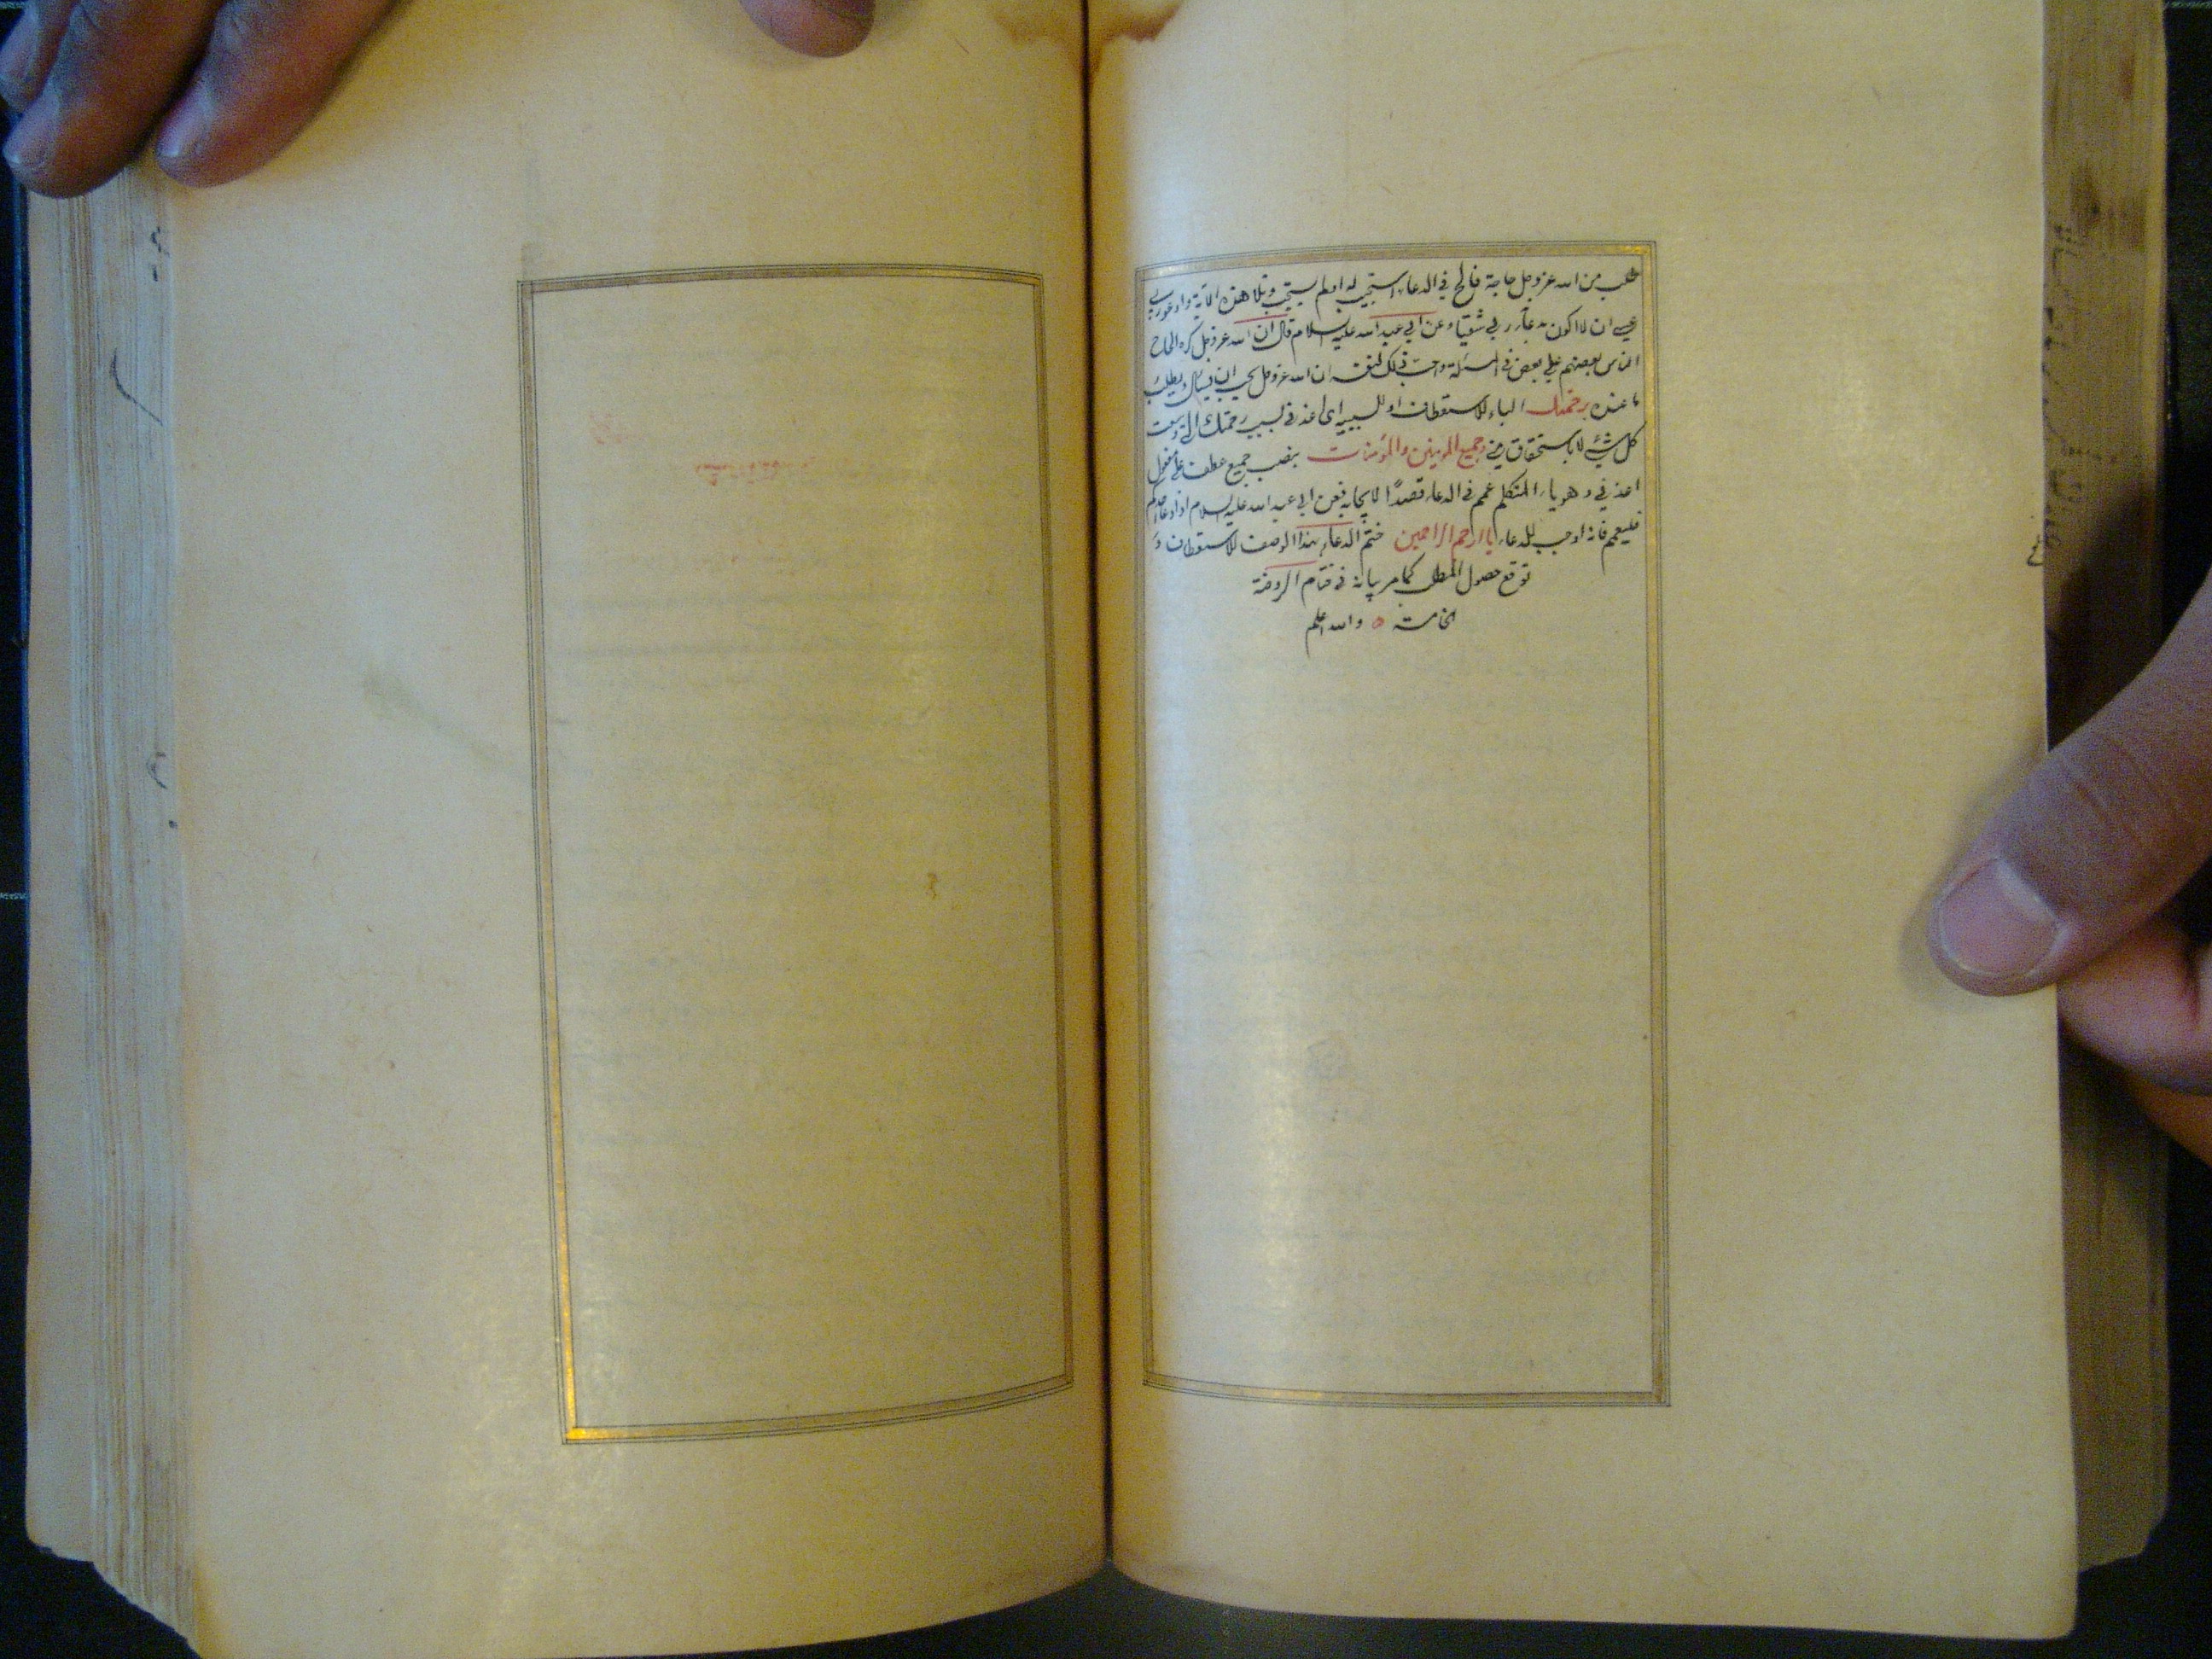 طلب من الله عز وجل حاجة فالح في الدعاء استجيب له اولم يستجب وتلا هذه الاية وادعو ربي
عسى ان لا اكون بدعاء ربي شقيا وعن ابي عبد الله عليه السلام قال ان الله عز وجل كره الحاح
الناس بعضهم على بعض في المسئلة واحب ذلك لنفسه ان الله عز وجل يحب ان يسال ويطلب
ما عنده برحمتك الباء للاستعطاف او للسببية اى اعذني بسبب رحمتك التي وسعت
كل شئ لا باستحقاق مني وجميع المومنين والمؤمنات بنصب جميع عطف على مفعول
اعذني وهو ياء المتكلم عمم في الدعاء قصدًا لايجابه فعن ابي عبد الله عليه السلام اذا دعا احدكم
فليعمم فانه اوجب للدعاء يا ارحم الراحمين ختم الدعاء بهذا الوصف للاستعطاف و
توقع حصول المطلب كما مر بيانه في ختام الروضة
الخامسة ه والله اعلم